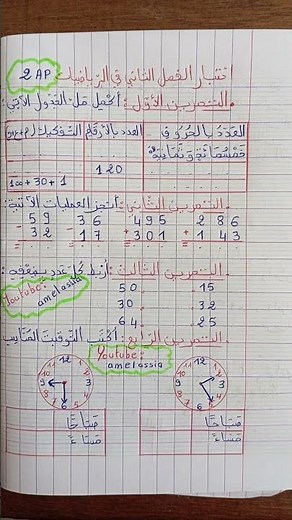 اختبار الفصل الثاني في الرياضيات 2 AP
التمرين الأول: أكمل ملء الجدول الآتي:
العدد بالحروف | العدد بالأرقام | التفكيك
خمسمائة وثمانية
120
100 + 30 + 1
التمرين الثاني: أنجز العمليات الآتية:
59 - 32
36 - 17
495 + 301
286 + 143
التمرين الثالث: أربط كل عدد بضعفه
Youtube: amelassia
50 . . 15
30 . . 32
64 . . 25
التمرين الرابع: أكتب التوقيت المناسب
Youtube: amelassia
12 1 2 3 4 5 6 7 8 9 10 11
12 1 2 3 4 5 6 7 8 9 10 11
صباحًا
مساءً
صباحًا
مساءً